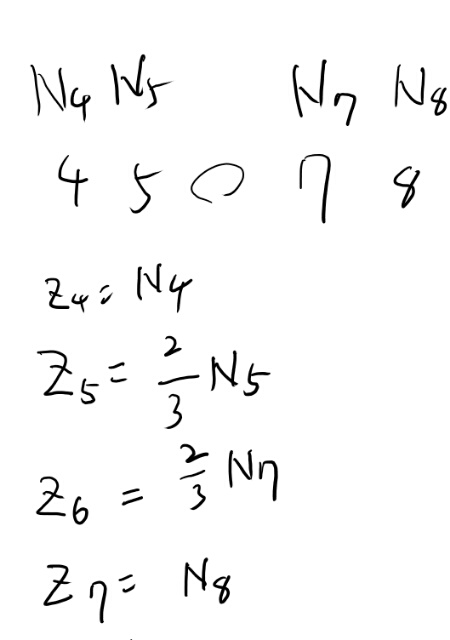 N4 N5 N7 N8
4 5 0 7 8
Z4 = N4
Z5 = 2/3 N5
Z6 = 2/3 N7
Z7 = N8